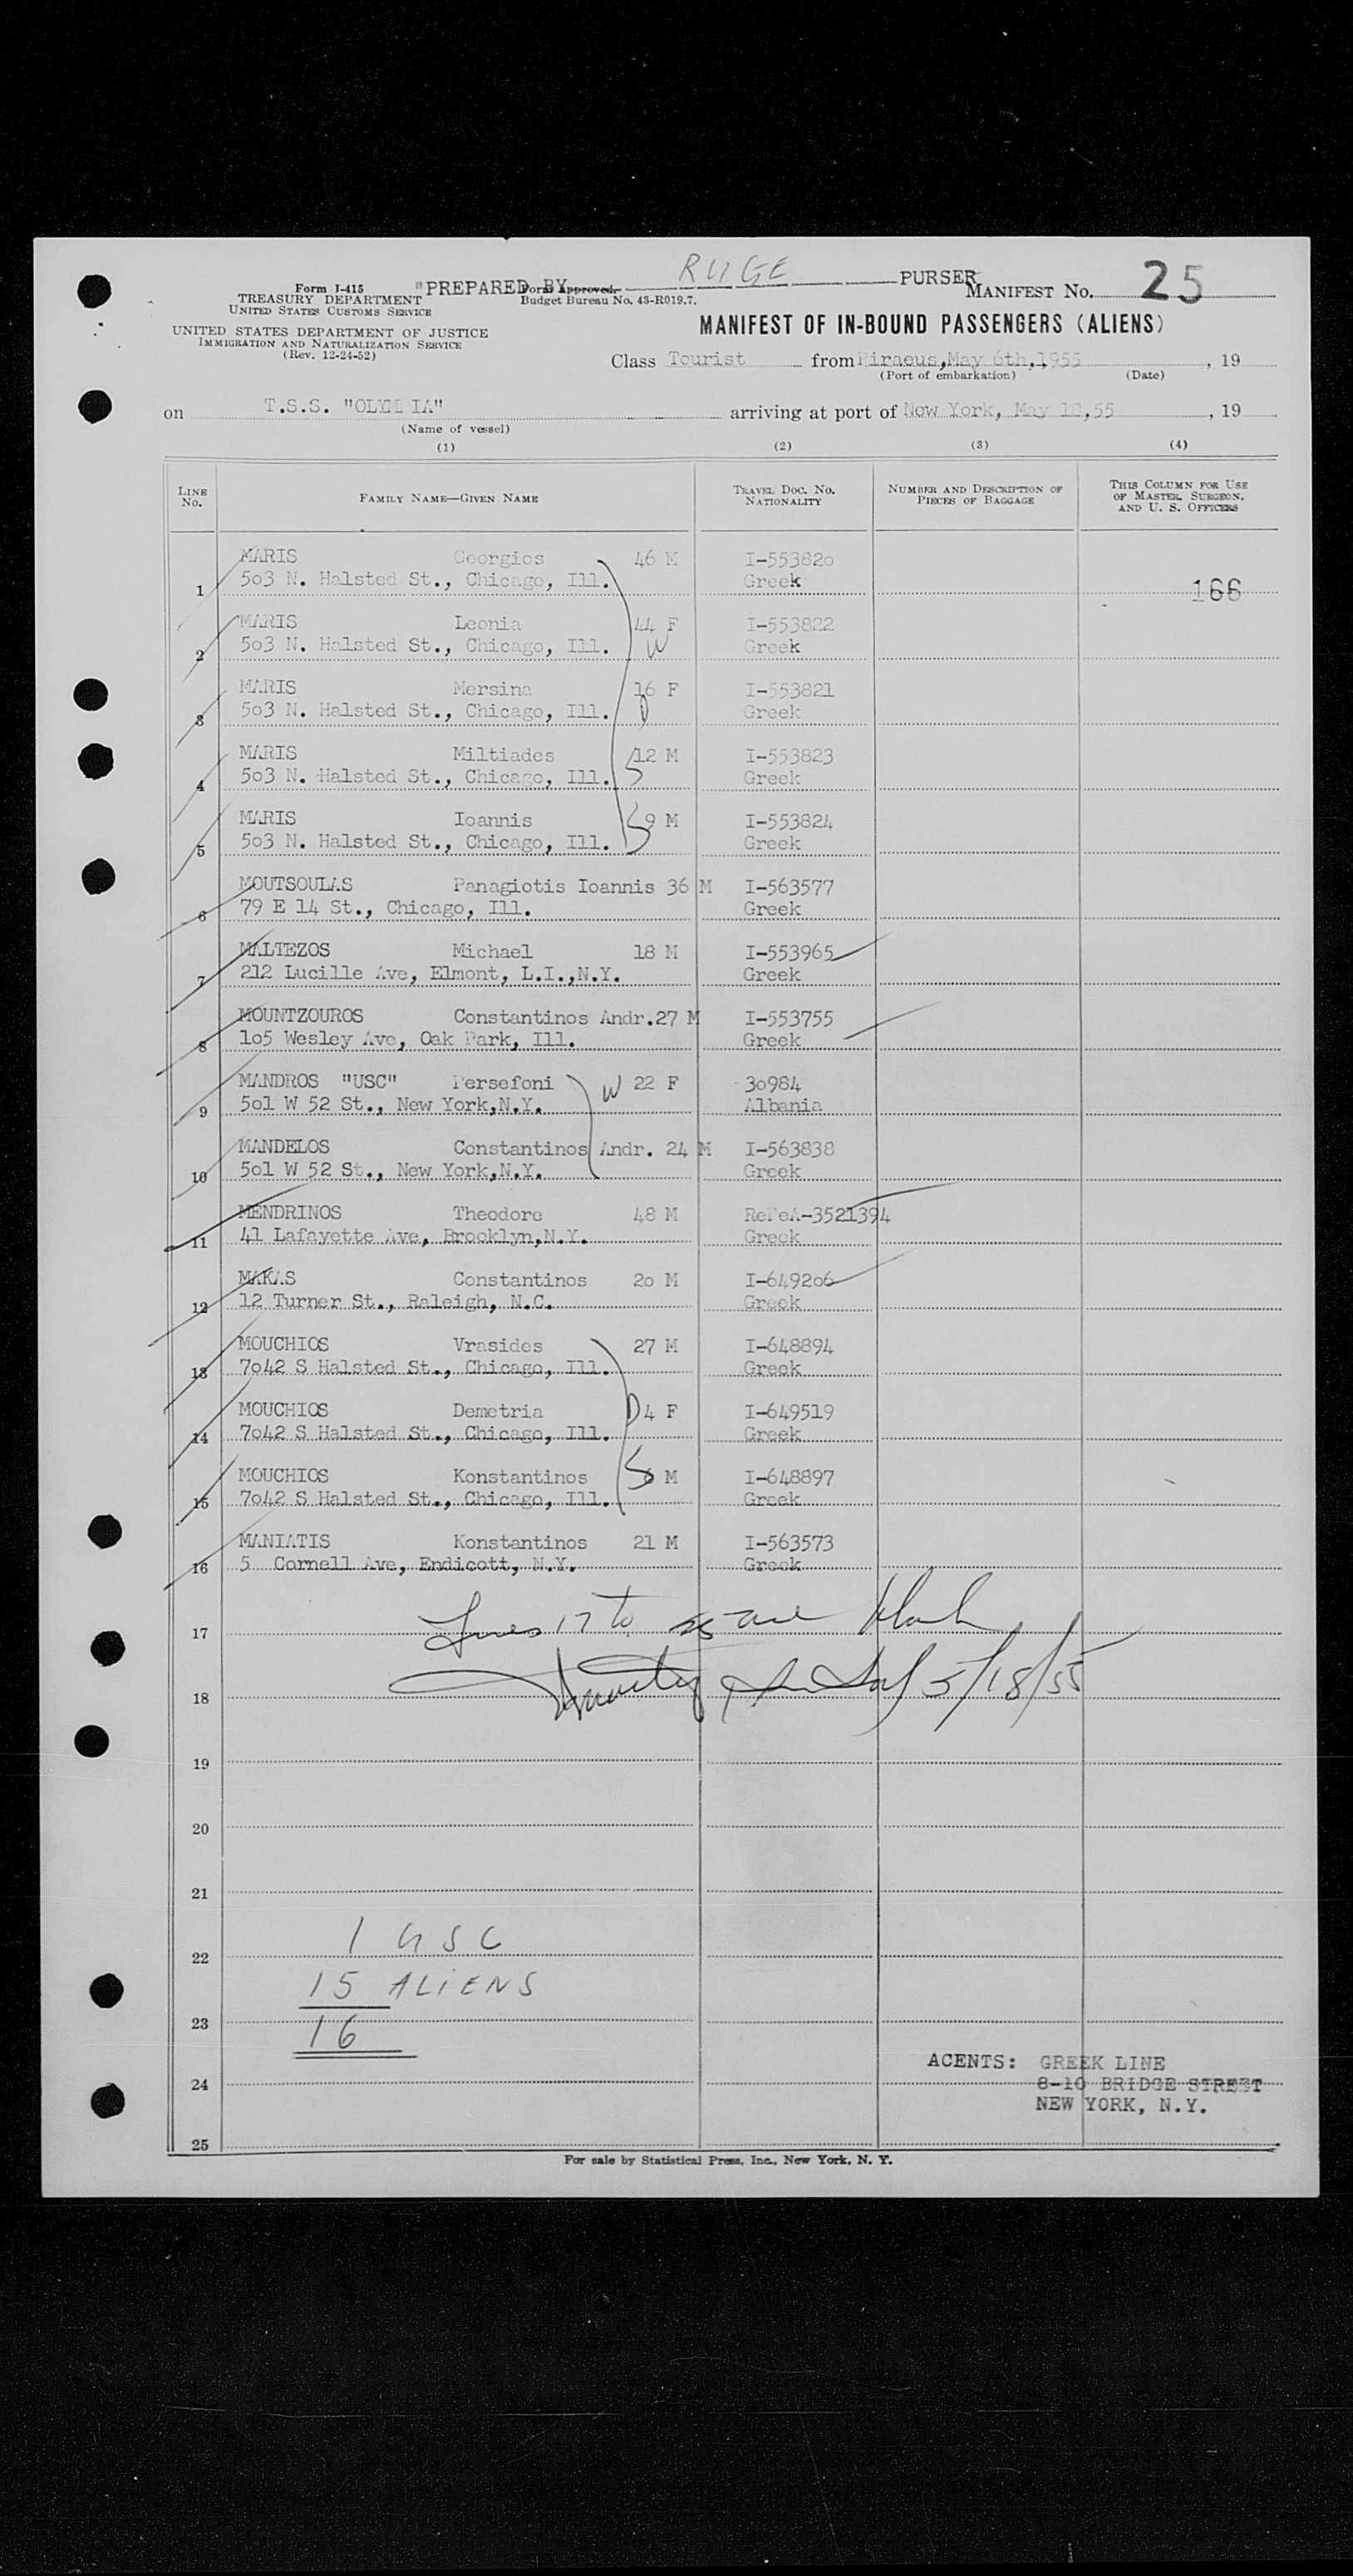 Form I-415
TREASURY DEPARTMENT
UNITED STATES CUSTOMS SERVICE
UNITED STATES DEPARTMENT OF JUSTICE
IMMIGRATION AND NATURALIZATION SERVICE
(Rev. 12-24-52)
"PREPARED BY RUGE PURSER
Form Approved.
Budget Bureau No. 43-R019.7.
MANIFEST No. 25
MANIFEST OF IN-BOUND PASSENGERS (ALIENS)
Class Tourist from Piraeus, May 6th, 1955, 19
(Port of embarkation) (Date)
on T.S.S. "OLYMPIA" arriving at port of New York, May 18,55, 19
(Name of vessel)
(1) (2) (3) (4)
LINE No. FAMILY NAME—GIVEN NAME TRAVEL DOC. NO. NATIONALITY NUMBER AND DESCRIPTION OF PIECES OF BAGGAGE THIS COLUMN FOR USE OF MASTER, SURGEON, AND U. S. OFFICERS
MARIS Georgios 46 M I-553820
1 503 N. Halsted St., Chicago, Ill. Greek 166
MARIS Leonia 44 F I-553822
2 503 N. Halsted St., Chicago, Ill. W Greek
MARIS Mersina 16 F I-553821
3 503 N. Halsted St., Chicago, Ill. D Greek
MARIS Miltiades 12 M I-553823
4 503 N. Halsted St., Chicago, Ill. S Greek
MARIS Ioannis S 9 M I-553824
5 503 N. Halsted St., Chicago, Ill. Greek
MOUTSOULAS Panagiotis Ioannis 36 M I-563577
6 79 E 14 St., Chicago, Ill. Greek
MALTEZOS Michael 18 M I-553965
7 212 Lucille Ave, Elmont, L.I.,N.Y. Greek
MOUNTZOUROS Constantinos Andr.27 M I-553755
8 105 Wesley Ave, Oak Park, Ill. Greek
MANDROS "USC" Persefoni W 22 F 30984
9 501 W 52 St., New York,N.Y. Albania
MANDELOS Constantinos Andr. 24 M I-563838
10 501 W 52 St., New York,N.Y. Greek
MENDRINOS Theodore 48 M RePeA-3521394
11 41 Lafayette Ave, Brooklyn,N.Y. Greek
MAKAS Constantinos 20 M I-649206
12 12 Turner St., Raleigh, N.C. Greek
MOUCHIOS Vrasides 27 M I-648894
13 7042 S Halsted St., Chicago, Ill. Greek
MOUCHIOS Demetria D 4 F I-649519
14 7042 S Halsted St., Chicago, Ill. Greek
MOUCHIOS Konstantinos S M I-648897
15 7042 S Halsted St., Chicago, Ill. Greek
MANIATIS Konstantinos 21 M I-563573
16 5 Cornell Ave, Endicott, N.Y. Greek
17 Lines 17 to 25 are blank
18 5/18/55
19
20
21
22 1 USC
15 ALIENS
23 16
24
25
AGENTS: GREEK LINE
8-10 BRIDGE STREET
NEW YORK, N.Y.
For sale by Statistical Press, Inc., New York, N. Y.